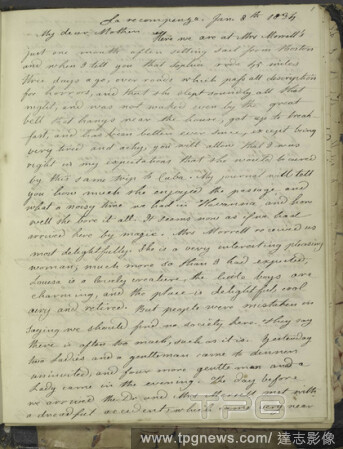 1
La recompenza. Jan. 8th 1834
My dear Mother Here we are at Mrs Morrell's
just one month after setting sail from Boston
and when I tell you that Sophia rode 45 miles
three days ago, over roads which pass all description
for horrors, and that she slept soundly all that
night, and was not waked even by the great
bell that hangs near the house, got up to break-
fast, and has been better ever since, except being
very tired and achy, you will allow that I was
right in my expectations that she would be cured
by this same trip to Cuba. My journal will tell
you how much she enjoyed the passage, and
what a noisy time we had in Havanna, and how
well she bore it all. It seems now as if we had
arrived here by magic. Mrs Morrell received us
most delightfully. She is a very interesting pleasing
woman, much more so than I had expected.
Louisa is a lovely creature, the little boys are
charming, and the place is delightful, cool
airy and retired. But people were mistaken in
saying we should find no society here. They say
there is often too much, such as it is. Yesterday
two ladies and a gentleman came to dinner
uninvited, and four more gentlemen and a
lady came in the evening. The day before
we arrived the Dr. and Mrs Morrell met with
a dreadful accident, which came very near
TPG
www.tpgnews.com / 達志影像